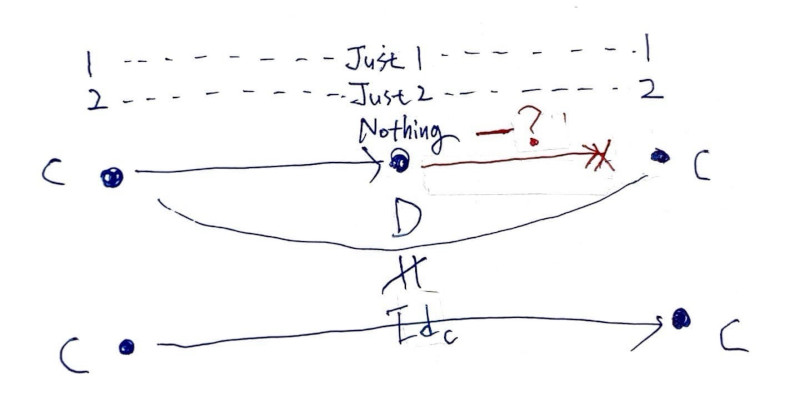 1 Just 1 1
2 Just 2 2
Nothing ?
C C
D
Id_C
C C